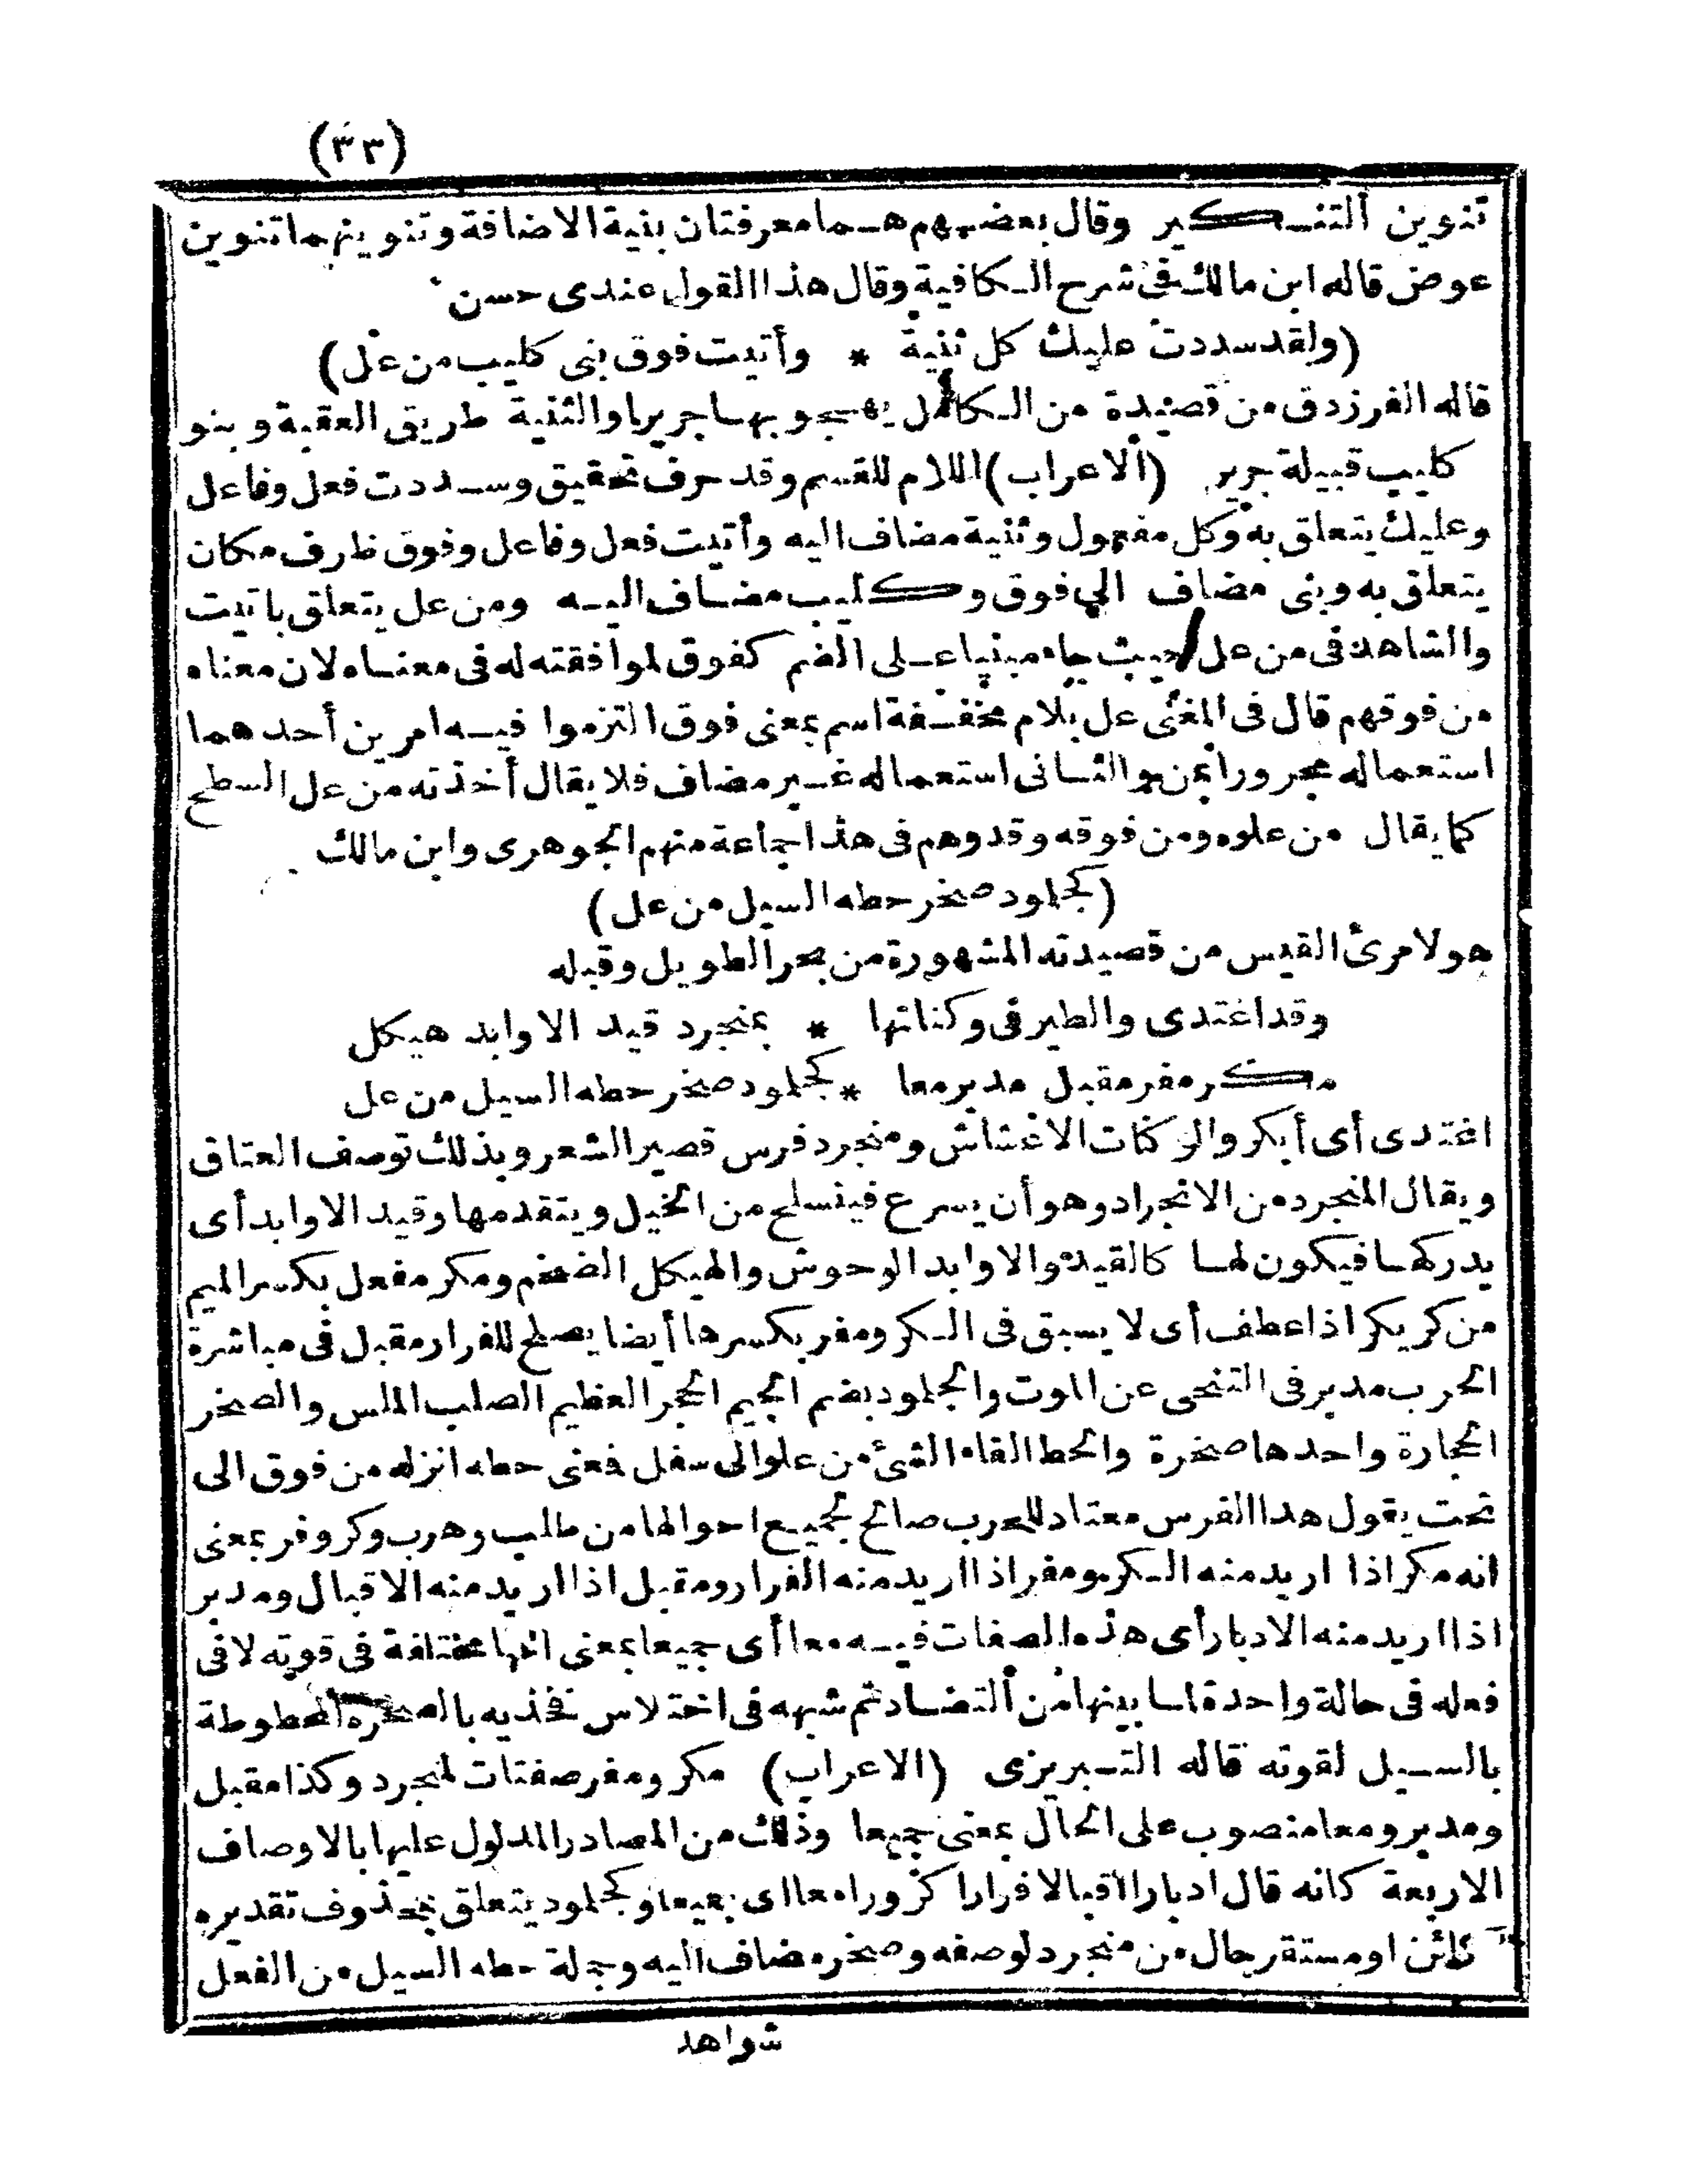 (٣٣)
تنوين التنكير وقال بعضهم هما معرفتان بنية الاضافة وتنوينهما تنوين
عوض قاله ابن مالك فى شرح الكافية وقال هذا القول عندى حسن
(ولقد سددت عليك كل ثنية * وأتيت فوق بنى كليب من عل)
قاله الفرزدق من قصيدة من الكامل يهجو بها جريرا والثنية طريق العقبة وبنو
كليب قبيلة جرير (الاعراب) اللام للقسم وقد حرف تحقيق وسددت فعل وفاعل
وعليك يتعلق به وكل مفعول وثنية مضاف اليه وأتيت فعل وفاعل وفوق ظرف مكان
يتعلق به وبنى مضاف الى فوق وكليب مضاف اليه ومن عل يتعلق باتيت
والشاهد فى من عل حيث جاء مبنيا على الضم كفوق لموافقته له فى معناه لان معناه
من فوقهم قال فى المغنى عل بلام مخففة اسم بمعنى فوق التزموا فيه امرين أحدهما
استعماله مجرورا بمن والثانى استعماله غير مضاف فلا يقال أخذته من عل السطح
كما يقال من علوه ومن فوقه وقد وهم فى هذا جماعة منهم الجوهرى وابن مالك
(كجلمود صخر حطه السيل من عل)
هو لامرئ القيس من قصيدته المشهورة من بحر الطويل وقبله
وقد اغتدى والطير فى وكناتها * بمنجرد قيد الاوابد هيكل
مكر مفر مقبل مدبر معا * كجلمود صخر حطه السيل من عل
اغتدى أى أبكر والوكنات الاعشاش ومنجرد فرس قصير الشعر وبذلك توصف العتاق
ويقال المنجرد من الانجراد وهو أن يسرع فينسلخ من الخيل ويتقدمها وقيد الاوابد أى
يدركها فيكون لها كالقيد والاوابد الوحوش والهيكل الضخم ومكر مفعل بكسر الميم
من كر يكر اذا عطف أى لا يسبق فى الكر ومفر بكسرها أيضا يصلح للفرار مقبل فى مباشرة
الحرب مدبر فى التنحى عن الموت والجلمود بضم الجيم الحجر العظيم الصلب الملس والصخر
الحجارة واحدها صخرة والحط القاء الشئ من علو الى سفل فمعنى حطه انزله من فوق الى
تحت يقول هدا الفرس معتاد للحرب صالح لجميع احوالها من طلب وهرب وكر وفر بمعنى
انه مكر اذا اريد منه الكر ومفر اذا اريد منه الفرار ومقبل اذا اريد منه الاقبال ومدبر
اذا اريد منه الادبار أى هذه الصفات فيه معا أى جميعا بمعنى انها مختلفة فى قوته لا فى
فعله فى حالة واحدة لما بينها من التضاد ثم شبهه فى اختلاس نخذيه بالصخرة المحطوطة
بالسيل لقوته قاله التبريزى (الاعراب) مكر ومفر صفتات لمنجرد وكذا مقبل
ومدبر ومعا منصوب على الحال بمعنى جميعا وذلك من المصادر المدلول عليها بالاوصاف
الاربعة كانه قال ادبارا اقبالا فرارا كرورا معا اى جميعا وكجلمود يتعلق بمحذوف تقديره
كائن او مستقر حال من منجرد لوصفه وصخر مضاف اليه وجملة حطه السيل من الفعل
شواهد